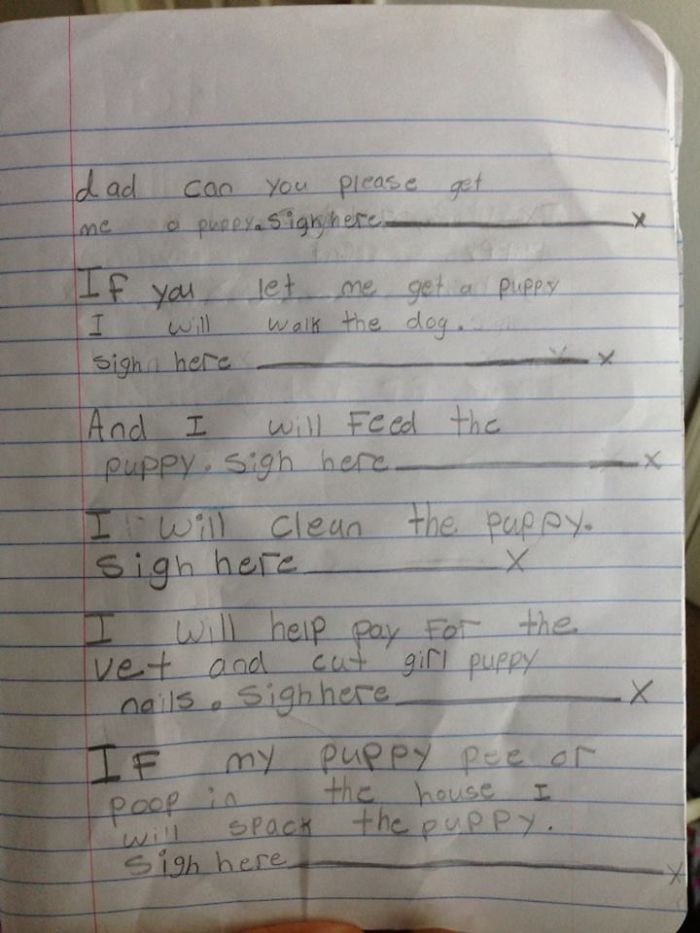 dad can you please get
me a puppy. Sigh here x
If you let me get a puppy
I will walk the dog.
sigh here x
And I will Feed the
puppy. Sigh here x
I will clean the puppy.
Sigh here X
I will help pay For the
vet and cut girl puppy
nails. Sigh here X
IF my puppy pee or
poop in the house I
will spack the puppy.
Sigh here X